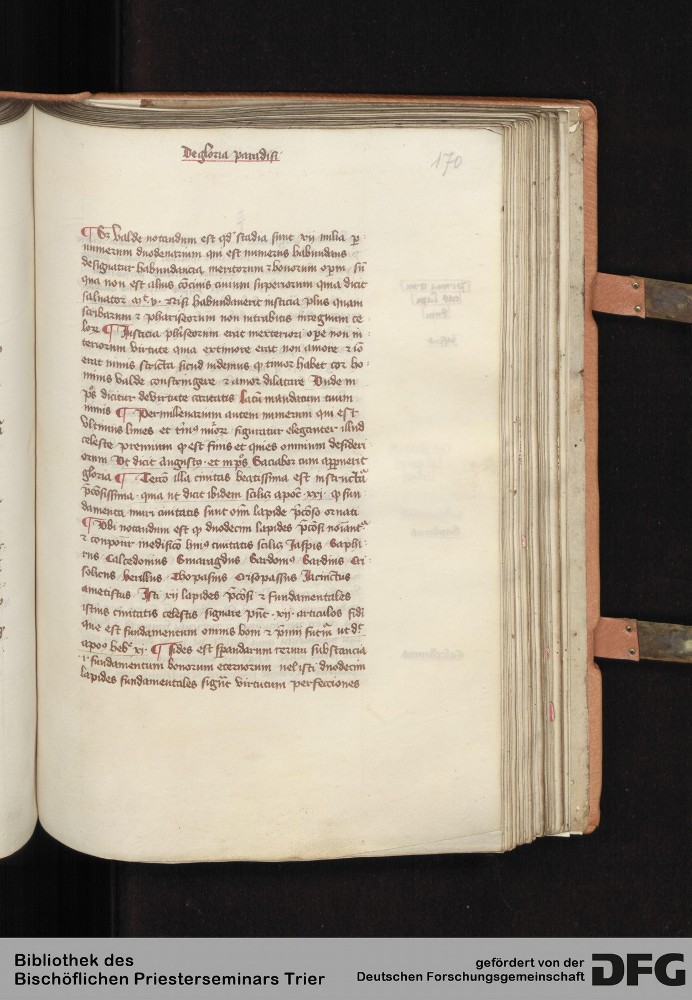 De gloria paradisi
170
¶ Et valde notandum est qd stadia sunt xij milia p
numerum duodenarium qui est numerus habundans
designatur habundancia meritorum et bonorum opm̄ sū
qua non est alius cōcius ciuium superiorum quia dicit
saluator Nisi habundauerit iusticia plus quam
scribarum et phariseorum non intrabitis in regnum ce
lorē ¶ Iusticia phiseorum erat in exteriori ope non in
teriorum virtute quia ex timore erat non amore et iō
erat nimis stricta sicud in demus q timor habet cor ho
minis valde constringere et amor dilatare Vnde in
pͦs dicitur de virtute caritatis Latū mandatum tuum
nimis ¶ Per millenarium autem numerum qui est
vltimus limes et figuratur eleganter illud
celeste premium q est finis et quies omnium desideri
orum Vt dicit Augustꝰ et in pͦs Saciabor cum appuerit
gloria ¶ Tercō illa ciuitas beatissima est instructā
pciosissima quia ut dicit ibidem scilicꝫ apoc xxi q fun
damenta muri ciuitatis sunt om̄ lapide pcioso ornati
¶ Vbi notandum est q duodecim lapides pciosi noiantͬ
et huiꝰ ciuitatis scilicꝫ Jaspis Saphi
rus Calcedonius Smaragdus Sardoniꝰ Sardius Cri
solitus berillus Thopasius Crisopassus Jacinctus
Ametistus Isti xij lapides pciosi et fundamentales
istius ciuitatis celestis signare pn̄t xij articulos fidi
que est fundamentum omnis boni et ut dc̄
apoꝰ heb xi ¶ Fides est spandarum rerum substancia
i fundamentum bonorum eternorum uel isti duodecim
lapides fundamentales signt̄ virtutum perfecciones
Bibliothek des
Bischöflichen Priesterseminars Trier
gefördert von der
Deutschen Forschungsgemeinschaft
DFG